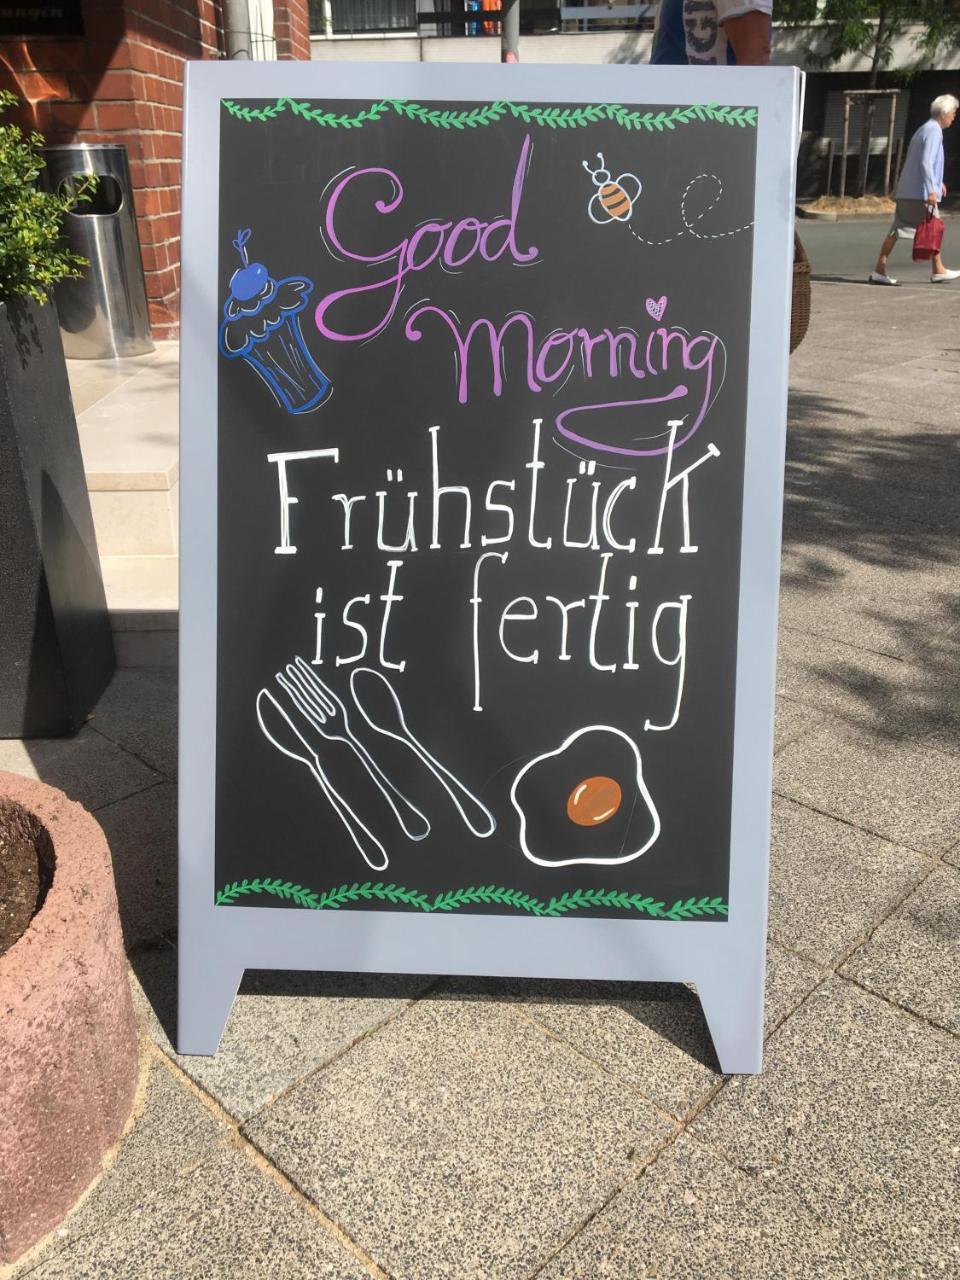 ungen
Good
Morning
Frühstück
ist fertig